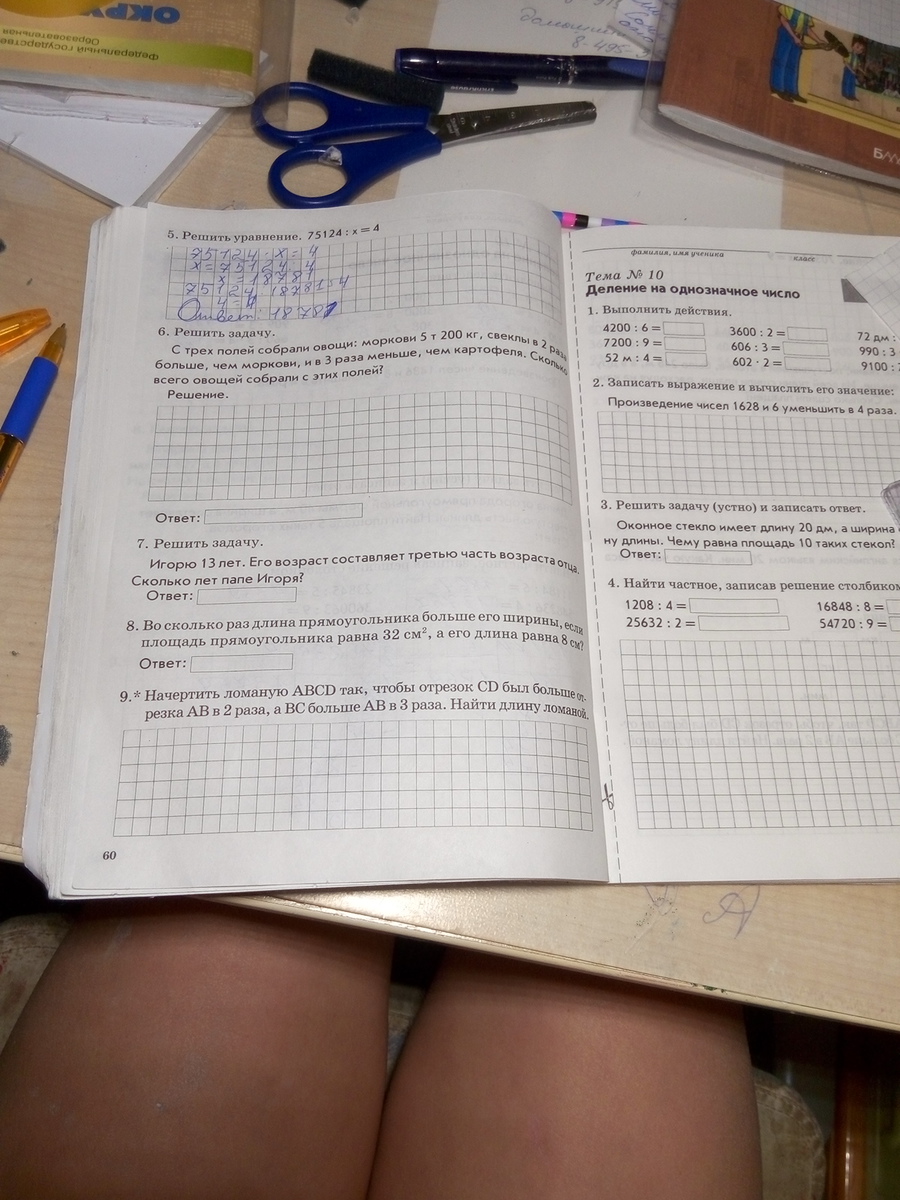 ОКРУ
Федеральный государстве
Образовательная
8-495-
5. Решить уравнение. 75124 : x = 4
75124 : x = 4
x = 75124 : 4
x = 18781
75124 : 18781 = 4
4 = 4
Ответ: 18781
6. Решить задачу.
С трех полей собрали овощи: моркови 5 т 200 кг, свеклы в 2 раза
больше, чем моркови, и в 3 раза меньше, чем картофеля. Сколько
всего овощей собрали с этих полей?
Решение.
Ответ:
7. Решить задачу.
Игорю 13 лет. Его возраст составляет третью часть возраста отца.
Сколько лет папе Игоря?
Ответ:
8. Во сколько раз длина прямоугольника больше его ширины, если
площадь прямоугольника равна 32 см², а его длина равна 8 см?
Ответ:
9.* Начертить ломаную ABCD так, чтобы отрезок CD был больше от-
резка AB в 2 раза, а BC больше AB в 3 раза. Найти длину ломаной.
60
фамилия, имя ученика класс
Тема № 10
Деление на однозначное число
1. Выполнить действия.
4200 : 6 = 3600 : 2 = 72 дм :
7200 : 9 = 606 : 3 = 990 : 3
52 м : 4 = 602 · 2 = 9100 :
2. Записать выражение и вычислить его значение:
Произведение чисел 1628 и 6 уменьшить в 4 раза.
3. Решить задачу (устно) и записать ответ.
Оконное стекло имеет длину 20 дм, а ширина
ну длины. Чему равна площадь 10 таких стекол?
Ответ:
4. Найти частное, записав решение столбиком
1208 : 4 = 16848 : 8 =
25632 : 2 = 54720 : 9 =